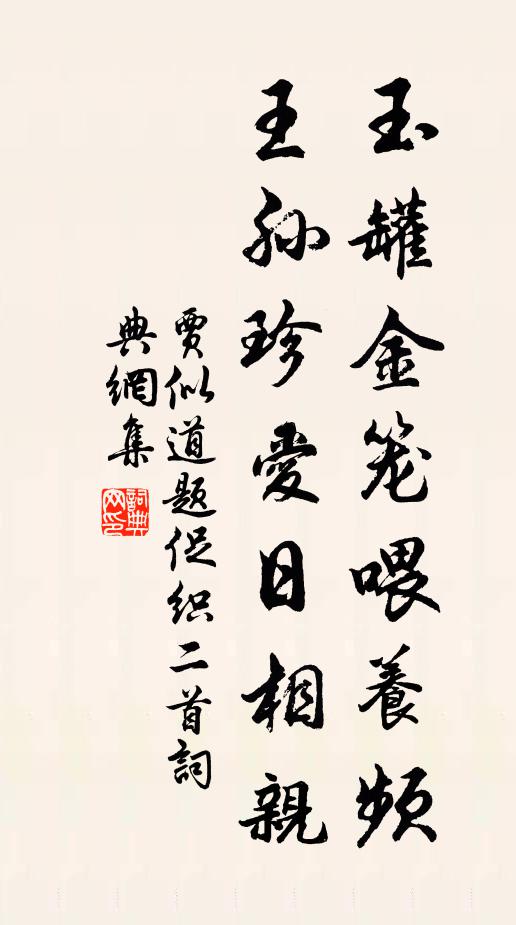 玉罐金笼喂養頻
王孙珍愛日相親
賈似道題促织二首詞
典網集
詞典网印